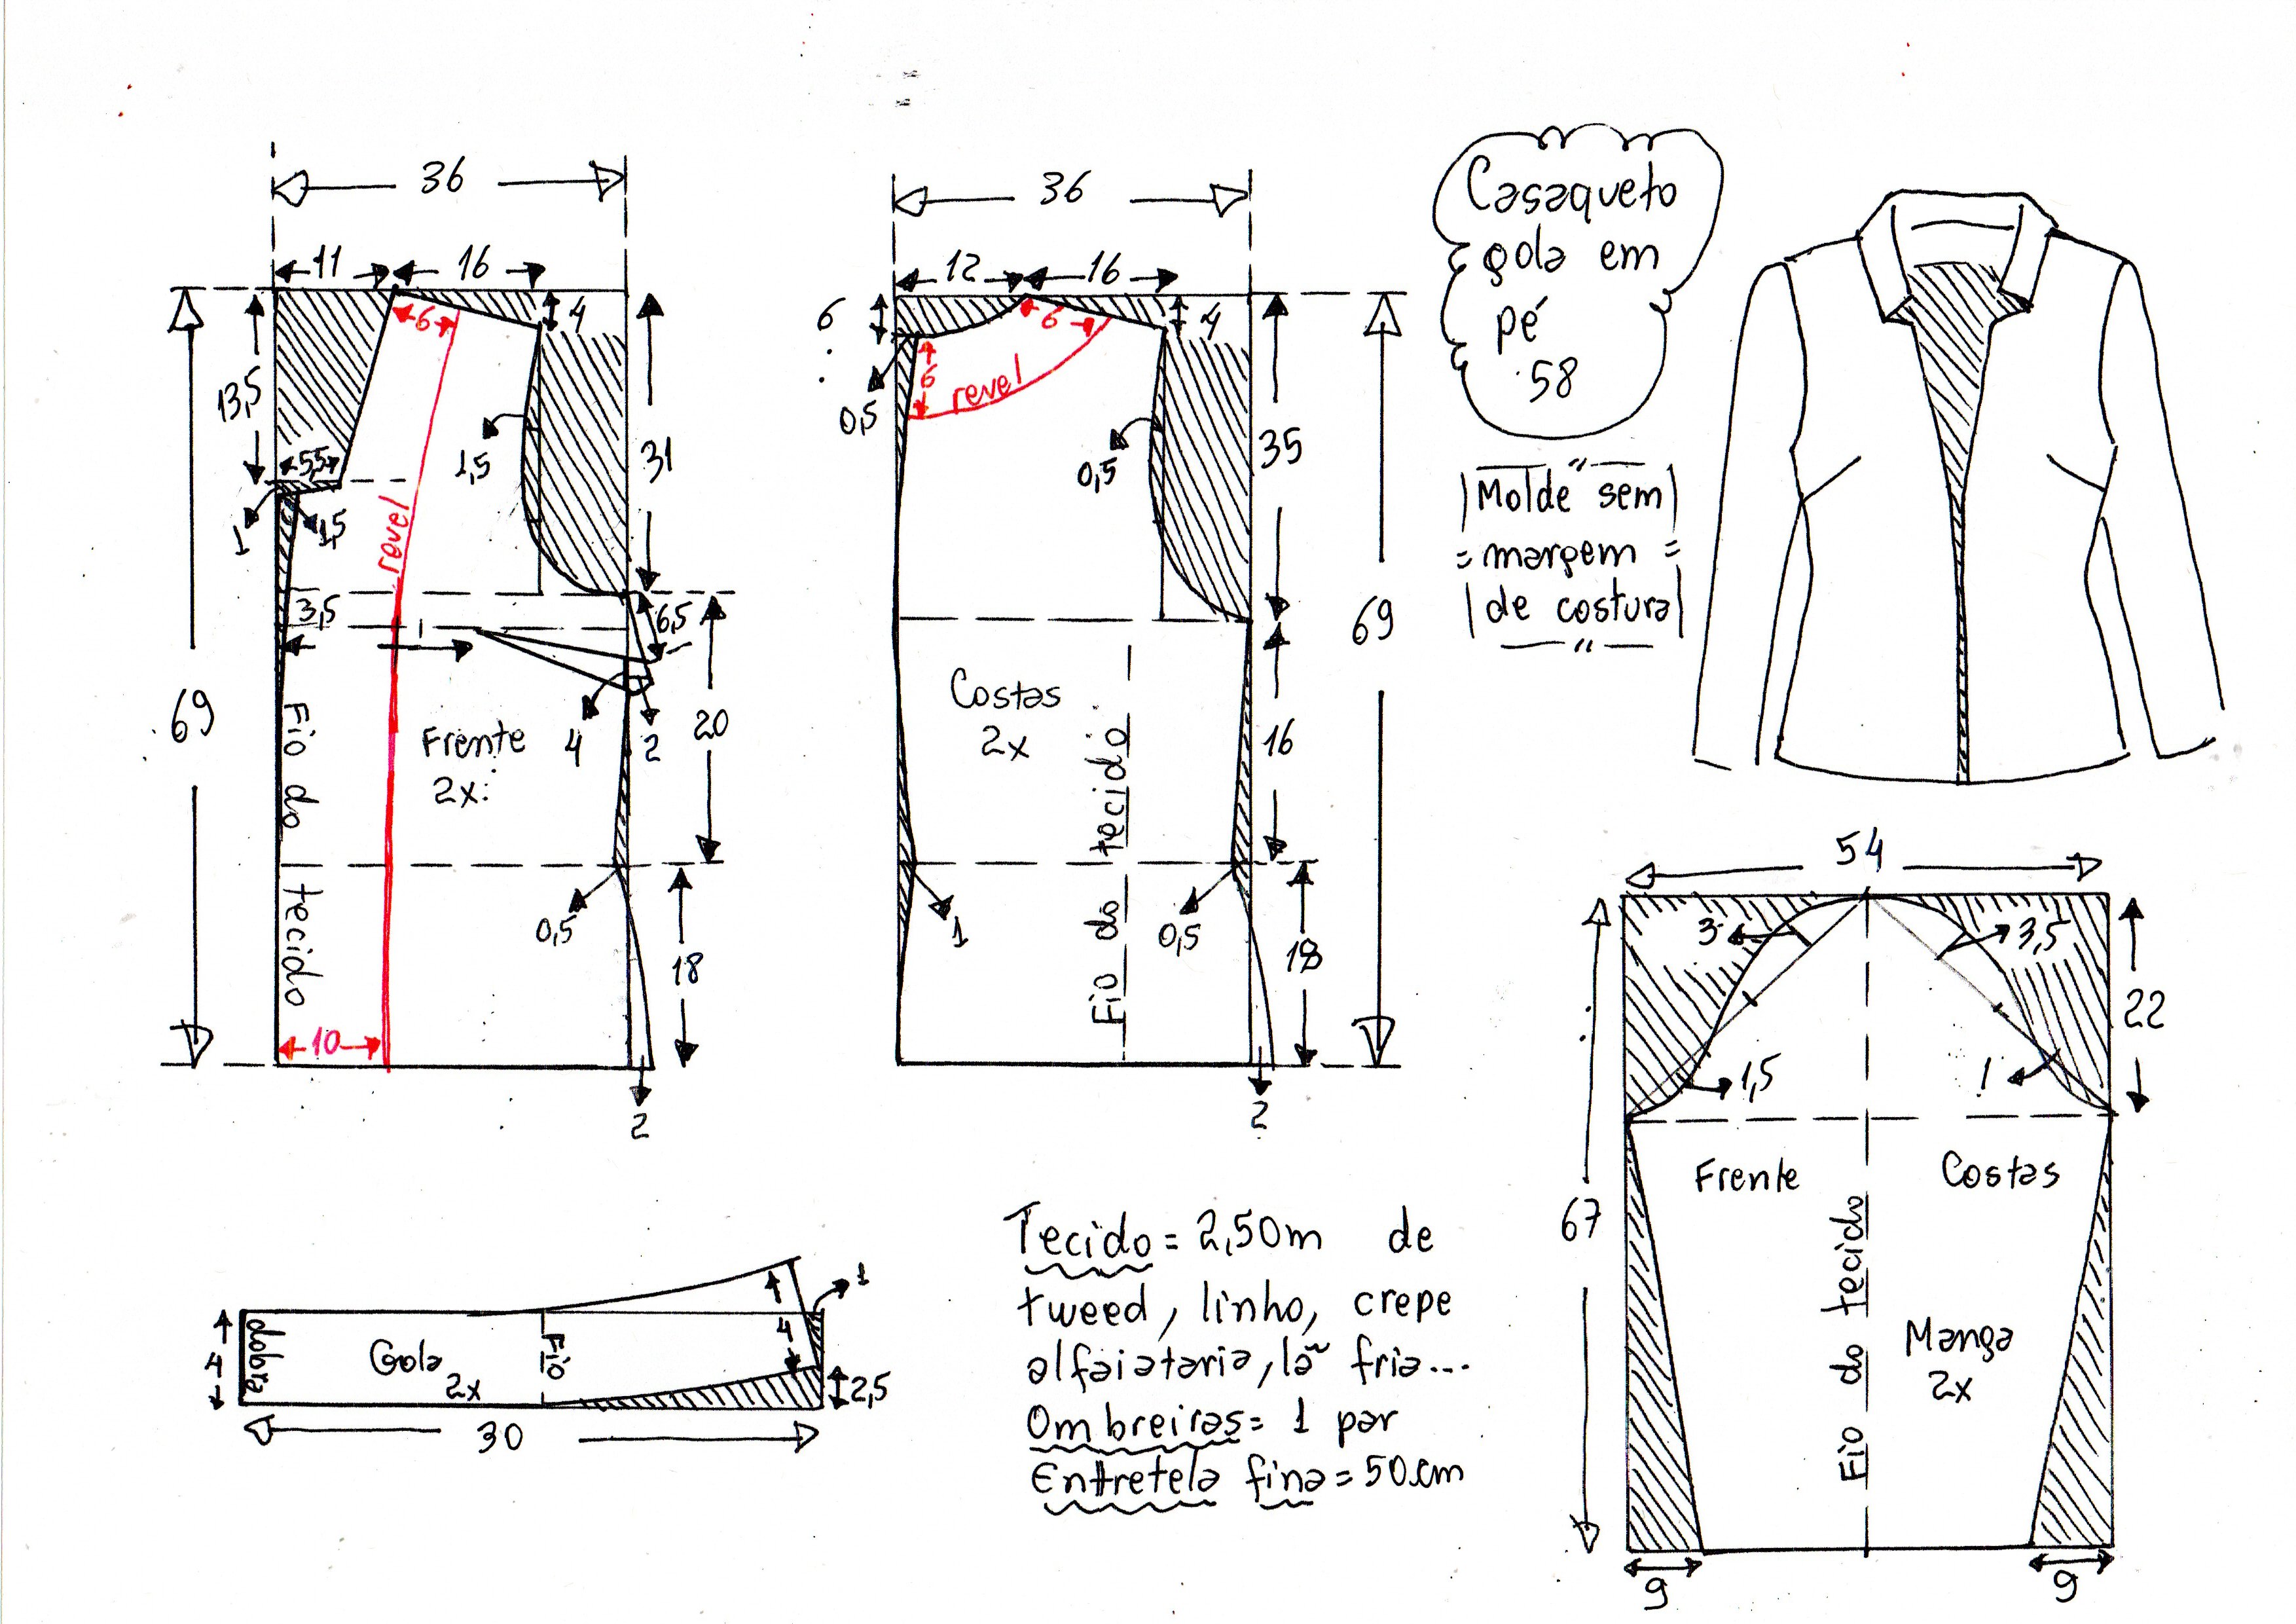 36
11
16
6
4
13,5
5,5
1
1,5
1,5
revel
31
3,5
6,5
69
4
2
20
Fio do tecido
Frente
2x
0,5
18
10
2
36
12
16
6
6
4
0,5
6
revel
0,5
35
69
Costas
2x
16
Fio do tecido
1
0,5
18
2
Casaqueto
gola em
pé
58
Molde sem
margem
de costura
54
3
3,5
22
1,5
1
Frente
Costas
67
Fio do tecido
Manga
2x
9
9
dobra
4
Gola
2x
Fio
4
1
2,5
30
Tecido = 2,50m de
tweed, linho, crepe
alfaiataria, lã fria...
Ombreiras = 1 par
Entretela fina = 50.cm